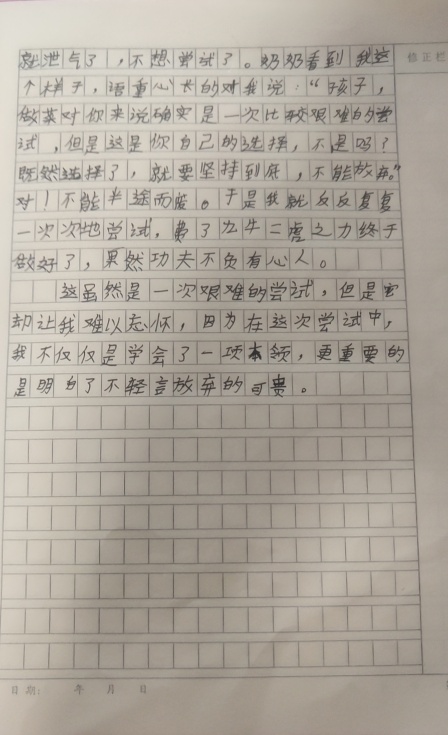 修正栏
就泄气了，不想尝试了。奶奶看到我这
个样子，语重心长的对我说：“孩子，
做菜对你来说确实是一次比较艰难的尝
试，但是这是你自己的选择，不是吗？
既然选择了，就要坚持到底，不能放弃。”
对！不能半途而废。于是我就反反复复
一次次地尝试，费了九牛二虎之力终于
做好了，果然功夫不负有心人。
这虽然是一次艰难的尝试，但是它
却让我难以忘怀，因为在这次尝试中，
我不仅仅是学会了一项本领，更重要的
是明白了不轻言放弃的可贵。
日期： 年 月 日